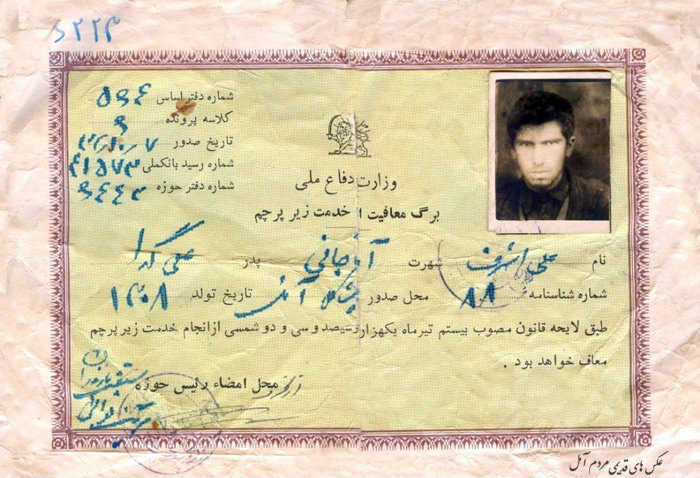 د ۲۲۳
شماره دفتر اساس ۵۹۴
کلاسه پرونده ۹
تاریخ صدور
شماره رسید بانکملی ۴۱۵۷۳
شماره دفتر حوزه
وزارت دفاع ملی
برگ معافیت از خدمت زیر پرچم
نام علی اشرف شهرت آقاجانی پدر علی گدا
شماره شناسنامه ۸۸ محل صدور آمل تاریخ تولد ۱۳۰۸
طبق لایحه قانون مصوب بیستم تیرماه یکهزار سیصد و سی و دو شمسی از انجام خدمت زیر پرچم
معاف خواهد بود .
محل امضاء رئیس حوزه
عکس های قدیمی مردم آمل